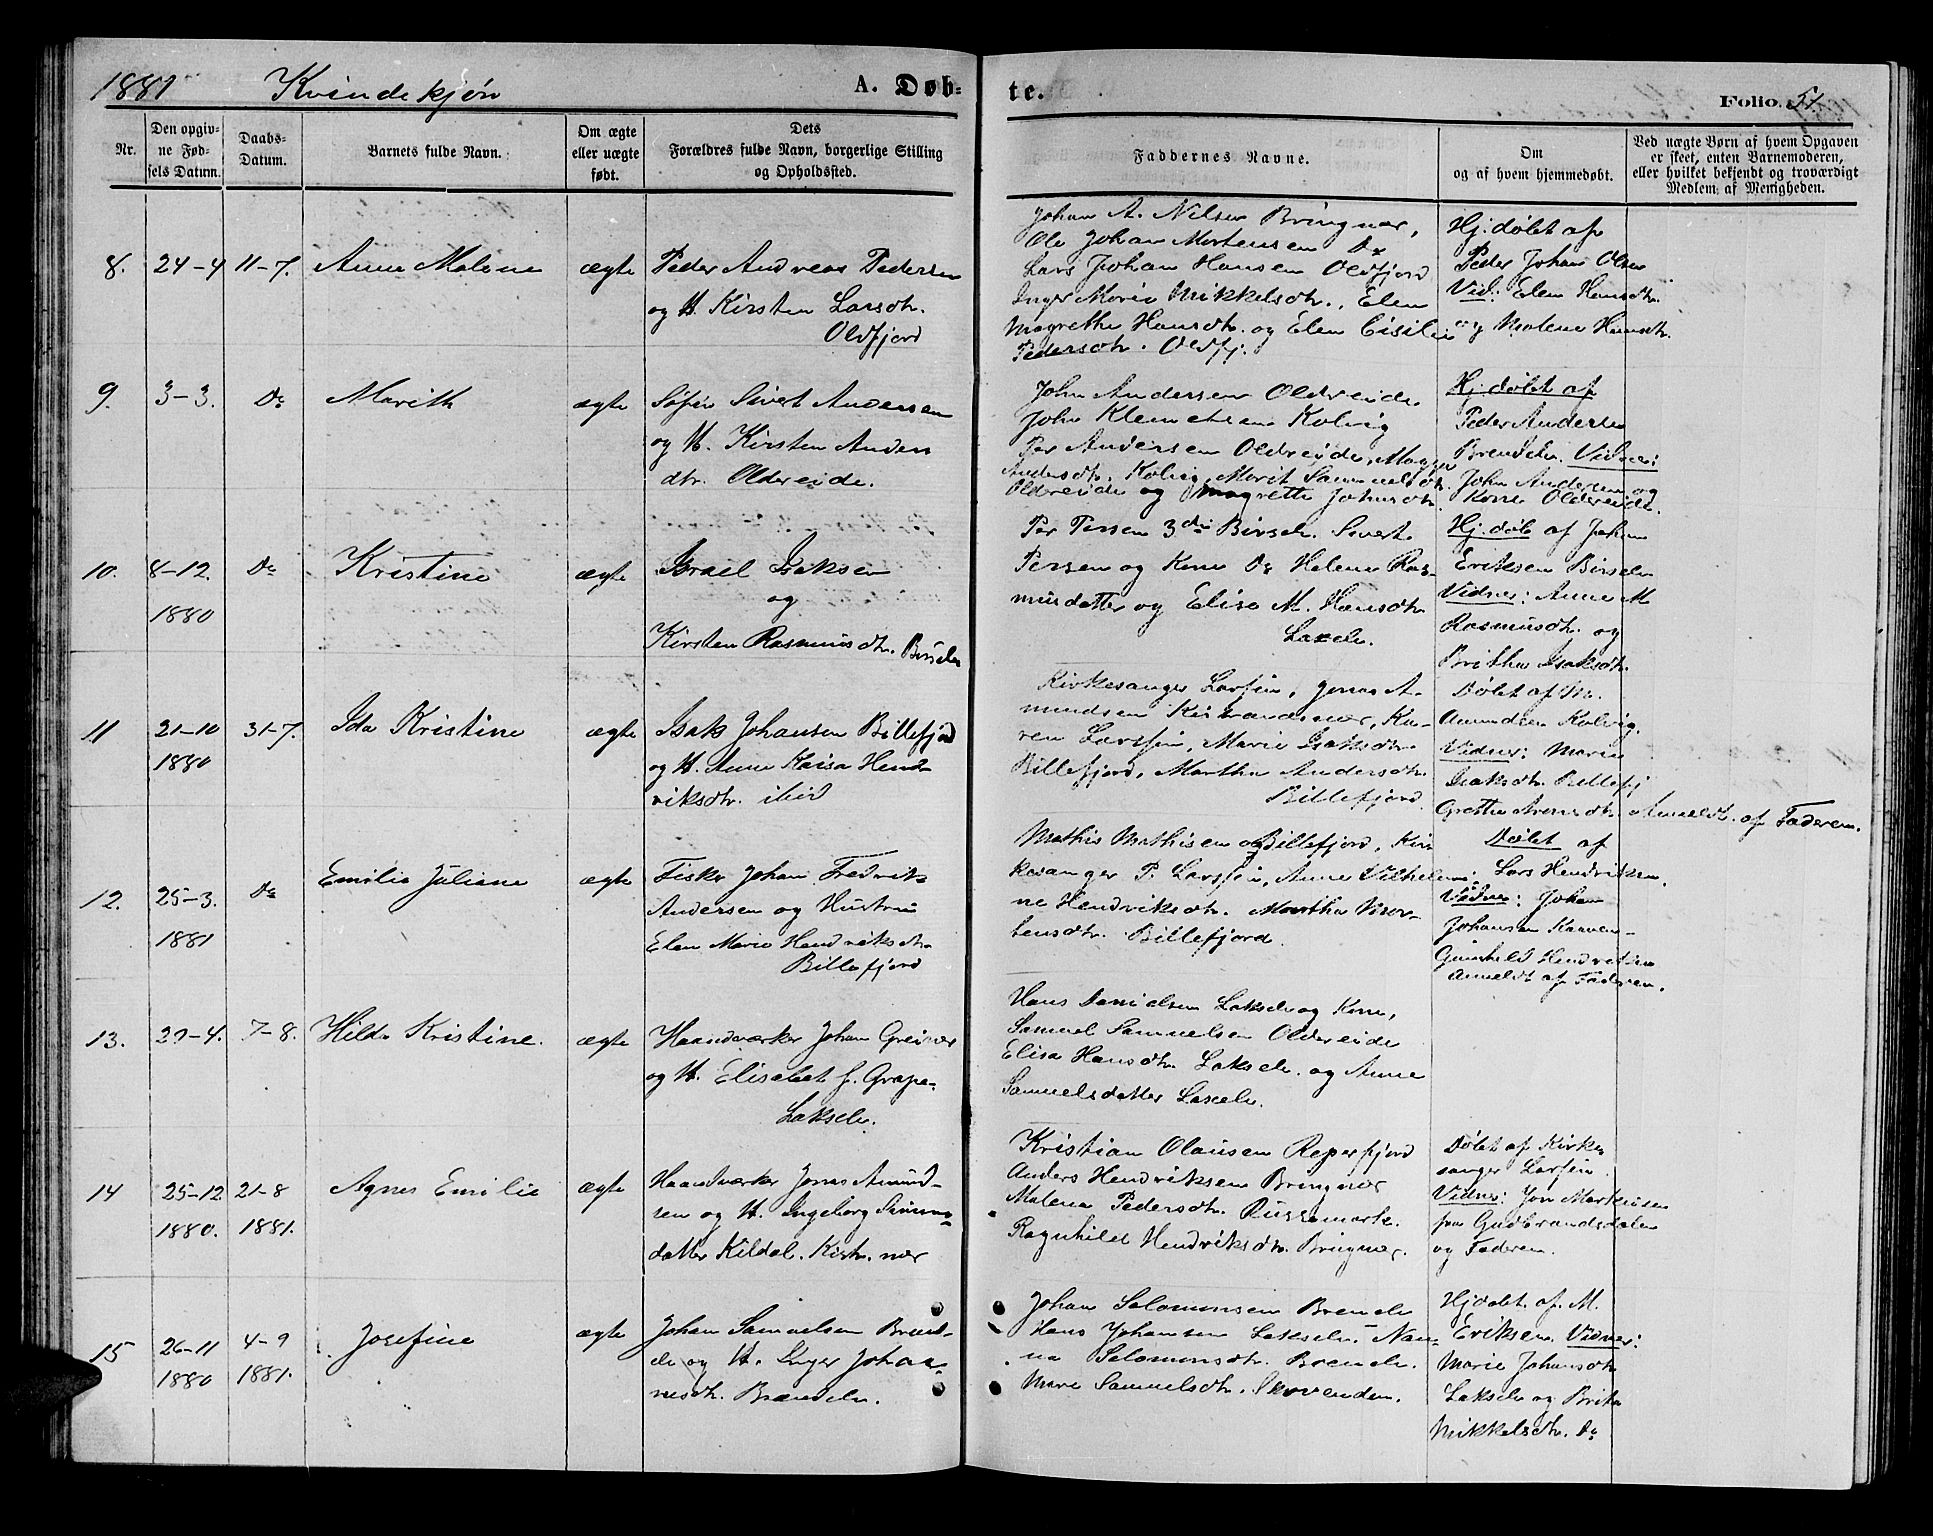 1881 Kvindekjøn A. Døb- te. Folio. 51
Nr.
Den opgiv-
ne Fød-
sels Datum.
Daabs-
Datum.
Barnets fulde Navn.
Om ægte
eller uægte
født.
Dets
Forældres fulde Navn, borgerlige Stilling
og Opholdssted.
Faddernes Navne.
Om
og af hvem hjemmedøbt.
Ved uægte Børn af hvem Opgaven
er skeet, enten Barnemoderen,
eller hvilket bekjendt og troværdigt
Medlem af Menigheden.
8. 24-4 11-7. Anne Malene ægte
Peder Andreas Pedersen
og H. Kirsten Larsdtr.
Oldfjord
Johan A. Nilsen Bringnær,
Ole Johan Mortensen Do
Lars Johan Hansen Oldfjord
Inger Marie Mikkelsdtr., Elen
Magrethe Hansdtr. og Elen Cisilie
Pedersdtr. Oldfj.
Hj. døbt af
Peder Johan Olsen
Vid: Elen Hansdtr.
og Malene Hansdtr.
9. 3-3. Do Marith ægte
Søfin Sivert Andersen
og H. Kirsten Anders
dtr. Oldereide.
John Andersen Oldereide.
John Klemetsen Kolvig
Per Andersen Oldereide,
Andersdtr. Kolvig, Marit Sammelsdtr.
Oldereide og Magrette Johnsdtr.
Hj. døbt af
Peder Andersen
Brendelv. Vidner:
John Andersen og
Kone Oldereide.
10. 8-12. Do Kristine ægte
1880
Israel Isaksen
og
Kirsten Rasmusdtr. Birselv
Per Persen 3die Birselv. Sivert
Persen og Kone Do Helene Ras-
musdatter og Elisa M. Hansdtr.
Laxelv.
Hj. døb af Johan
Eriksen Birselv
Vidner: Anne M
Rasmusdtr. og
Britha Isaksdtr.
11 21-10 31-7. Ida Kristine ægte
1880
Isak Johansen Billefjord
og H. Anne Kaisa Hend-
riksdtr. ibid
Kirkesanger Larsen, Jonas A-
mundsen Kistrandsnær, Ka-
ren Larsen, Marie Isaksdtr.
Billefjord, Martha Andersdtr.
Billefjord
Døbt af M.
Amundsen Kolvig.
Vidner: Marie
Isaksdtr. Billefj
Grethe Arensdtr. Anmeldt af Faderen.
12. 25-3. Do Emilie Juliane ægte
1881
Fisker Johan Fredrik
Andersen og Hustru
Elen Marie Hendriksdtr.
Billefjord
Mathis Mathisen Billefjord, Kir-
kesanger P. Larsen, Anne Vilhelmi-
ne Hendriksdtr. Martha Mor-
tensdtr. Billefjord.
Døbt af
Lars Hendriksen.
Vidner: Johan
Johansen
Gunhild
Anmeldt af Faderen.
13. 29-4. 7-8. Hilda Kristine. ægte
Haandværker Johan Greiner
og H. Elisabet f. Grape.
Lakselv.
Hans Danielsen Lakselv og Kone,
Samuel Samuelsen Oldereide
Elisa Hansdtr. Lakselv. og Anne
Samuelsdatter Laxelv.
14 25-12 21-8 Agnes Emilie ægte
1880. 1881.
Haandværker Jonas Amund-
sen og H. Ingeborg Simons-
datter Kildal. Kistr. nær
Kristian Olausen Reperfjord
Anders Hendriksen Bringnær
Malena Pedersdtr. Russemark.
Ragnhild Hendriksdtr. Bringnær.
Døbt af Kirke
sanger Larsen.
Vidner: Jon Markusen
fra Gudbrandsdalen
og Faderen.
15 26-11 4-9 Josefine ægte
1880 1881.
Johan Samuelsen Brend-
elv og H. Inger Johan-
nesdtr. Brendelv.
Johan Salomonsen Brendelv
Hans Johansen Lakselv. Nan-
na Salomonsdtr. Brendelv.
Mari Samuelsdtr. Skovenden.
Hjdøbt. af. M.
Eriksen. Vidner:
Marie Johansdtr
Lakselv og Brita
Mikkelsdtr. Do